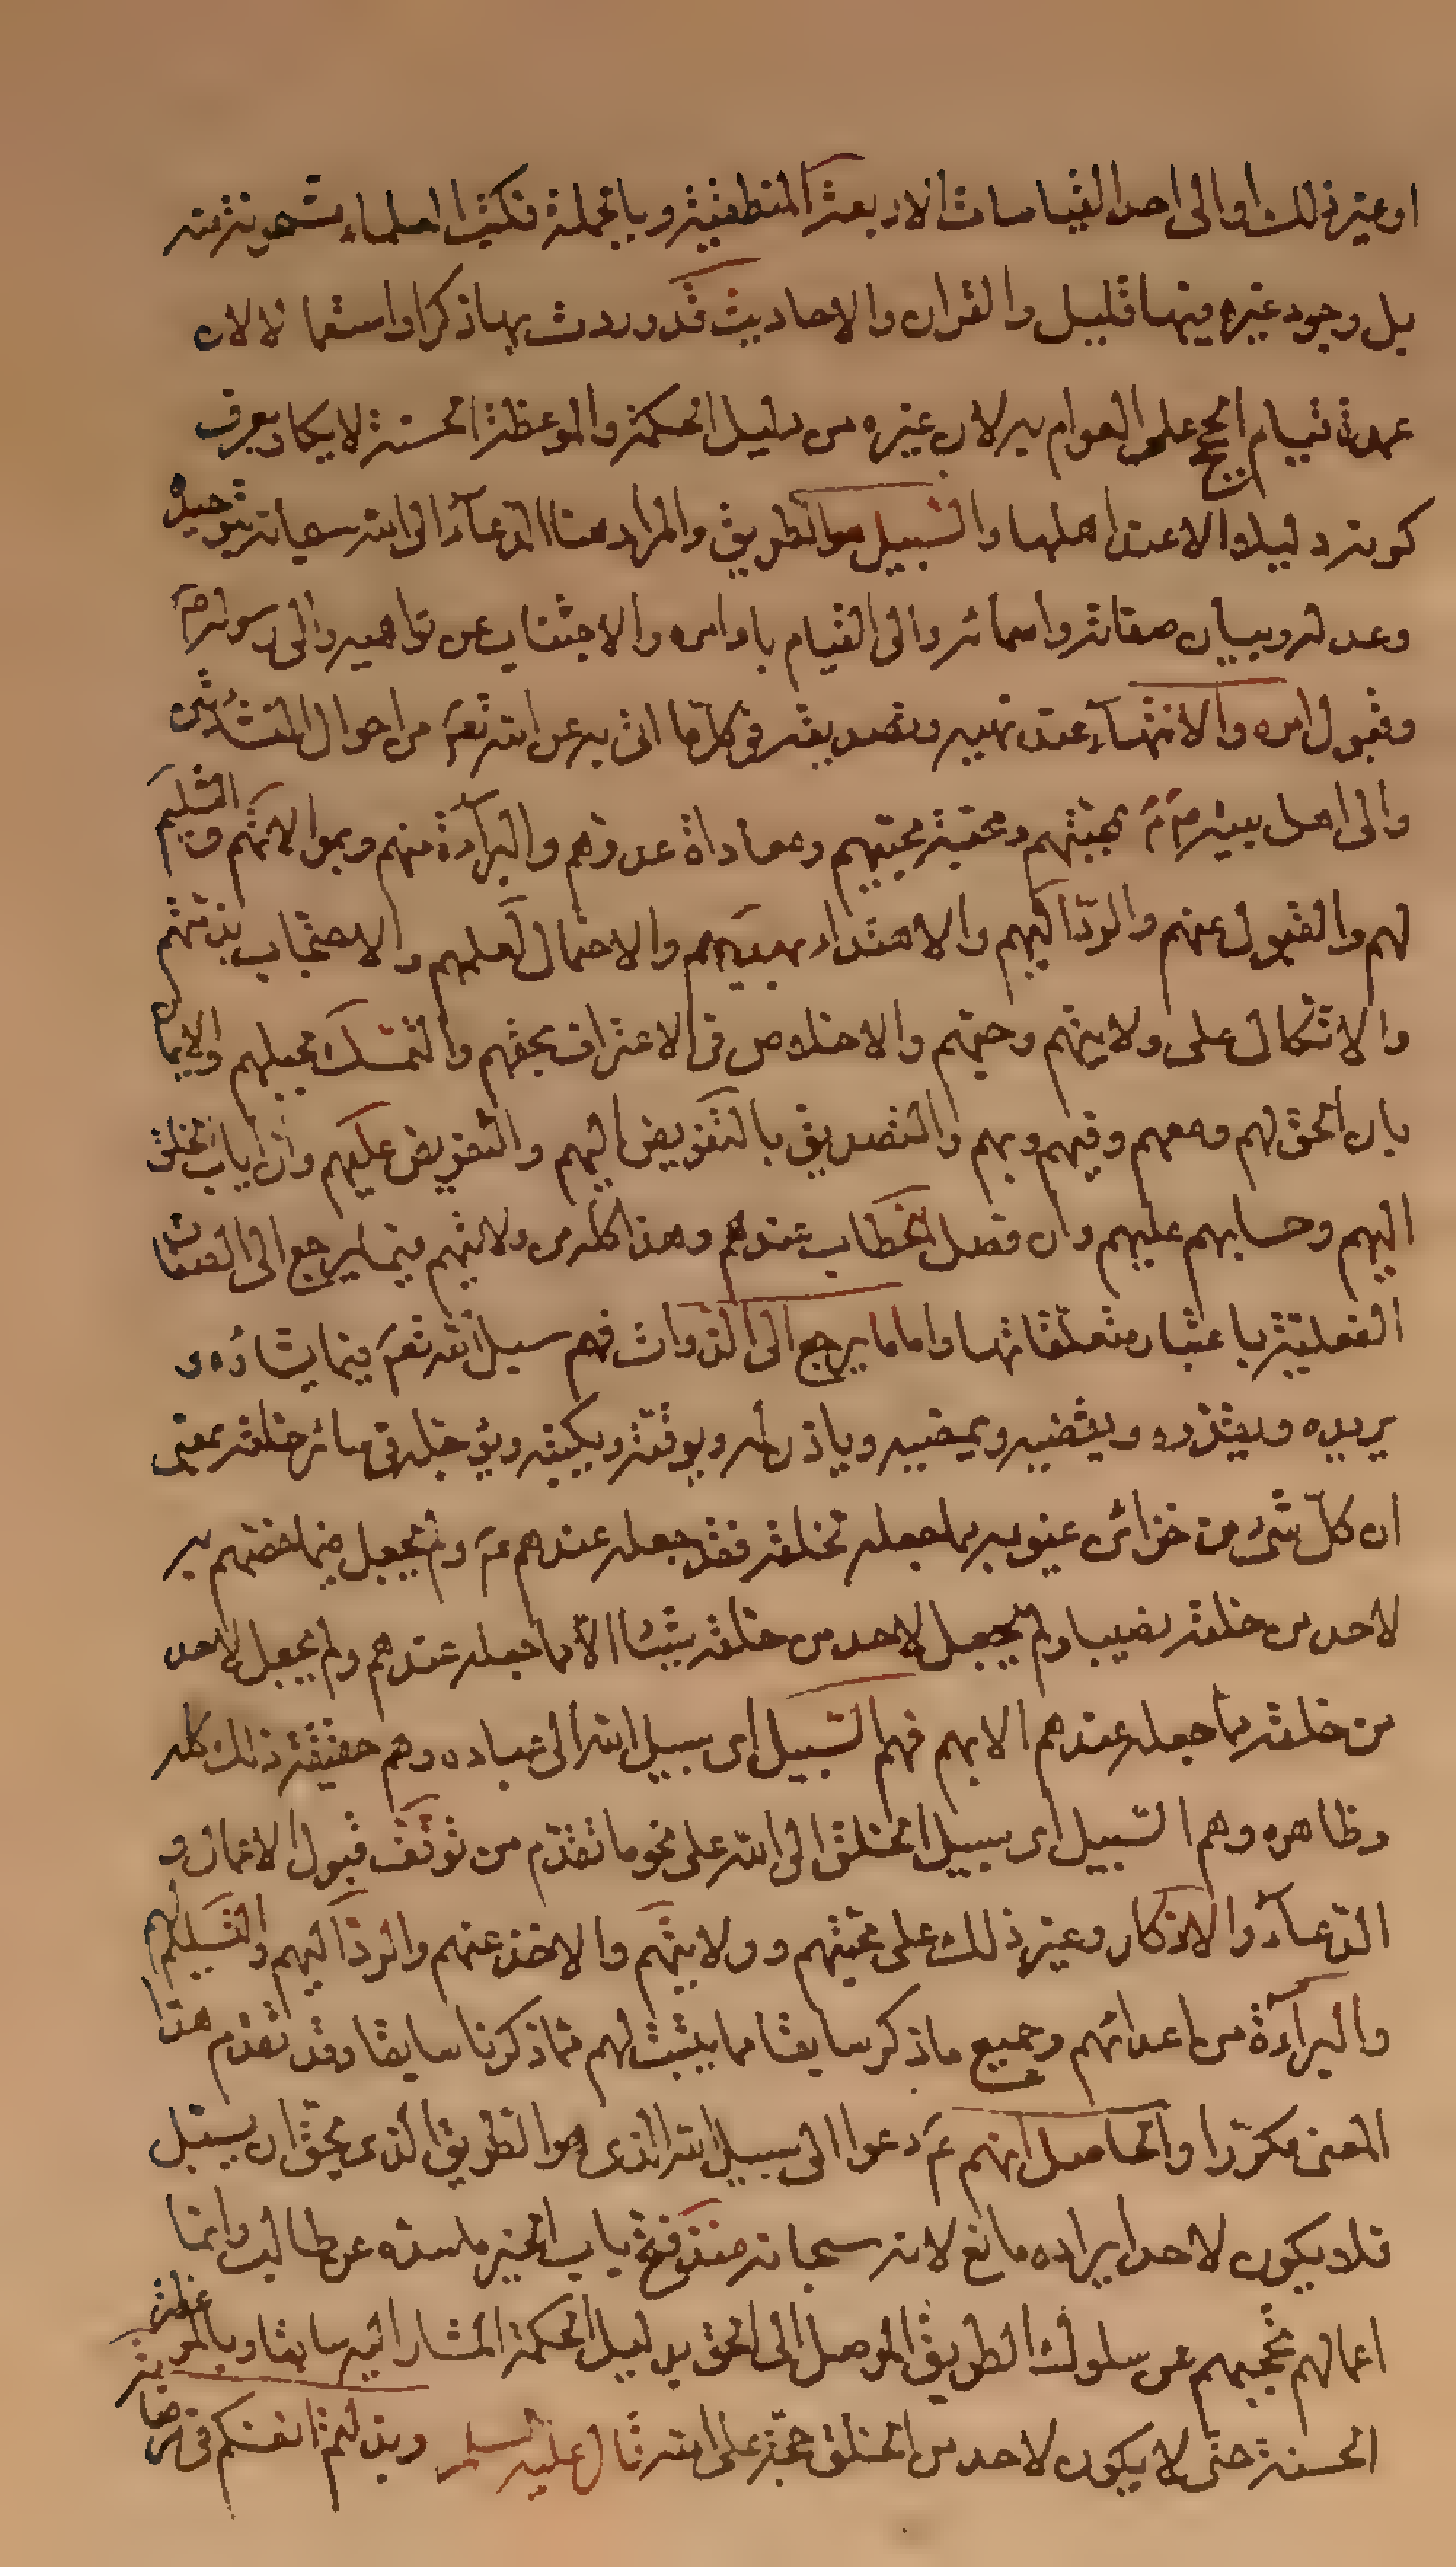 او غير ذلك او الى احد القياسات الاربعة المنطقية وبالجملة فكتب العلماء مشحونة منه
بل وجود غيره فيها قليل والقران والاحاديث قد وردت بها ذكرا واستعمالا لان
عمدة قيام الحجج على العوام به لان غيره من دليل الحكمة والموعظة الحسنة لا يكاد يعرف
كونه دليلا الا عند اهلها والسبيل هو الطريق والمراد هنا الدعآء الى الله سبحانه بتوحيده
وعدله وبيان صفاته واسمائه والى القيام باوامره والاجتناب عن نواهيه والى رسوله ص
وقبول امره والانتهآء عند نهيه وتصديقه في كل ما اتى به عن الله تعم من احوال النشأتين
والى اهل بيته ص ع بمحبتهم ومحبة محبيهم ومعاداة عدوهم والبرآءة منهم وبموالاتهم والتسليم
لهم والقبول عنهم والردّ اليهم والاهتداء بهديهم والاحتمال لعلمهم والاحتجاب بذمتهم
والاتكال على ولايتهم وحبهم والاخلاص في الاعتراف بحقهم والتمسك بحبلهم والايمان
بان الحق لهم ومعهم وفيهم وبهم والتصديق بالتفويض اليهم والتعويض عليهم وان اياب الخلق
اليهم وحسابهم عليهم وان فصل الخطاب عندهم وهذا كله من ولايتهم فيما يرجع الى الصفات
الفعلية باعتبار متعلقاتها واما ما يرجع الى الذوات فهم سبيل الله تعم فيما يشاؤه و
يريده ويقدره ويقضيه ويمضيه وياذن له ويوقته ويكتبه ويؤجله في سائر خلقه بمعنى
ان كلّ شئ من خزائن غيوبه مما جعله لخلقه فقد جعله عندهم ع ولم يجعل فيما خصهم به
لاحد من خلقه نصيبا ولم يجعل لاحد من خلقه شيئا الا مما جعله عندهم ولم يجعل لاحد
من خلقه مما جعله عندهم الا بهم فهم السبيل اى سبيل الله الى عباده وهم حقيقة ذلك كله
وظاهره وهم السبيل اى سبيل الخلق الى الله على نحو ما تقدم من توقف قبول الاعمال و
الدعآء والاذكار وغير ذلك على محبتهم وولايتهم والاخذ عنهم والردّ اليهم والتسليم لهم
والبرآءة من اعدائهم وجميع ما ذكر سابقا مما يثبت لهم مما ذكرنا سابقا وقد تقدم هذا
المعنى مكرّرا والحاصل انهم ع دعوا الى سبيل الله الذى هو الطريق الذى يحق ان يسبل
فلا يكون لاحد ايراده مانع لانه سبحانه منذ فتح باب الخير ما سده عن طالب وانما
اعمالهم تحجبهم عن سلوك الطريق الموصل الى الحق بدليل الحكمة المشار اليه سابقا وبالموعظة
الحسنة حتى لا يكون لاحد من الخلق حجة على الله قال عليه السلم وبذلتم انفسكم في مرضاته